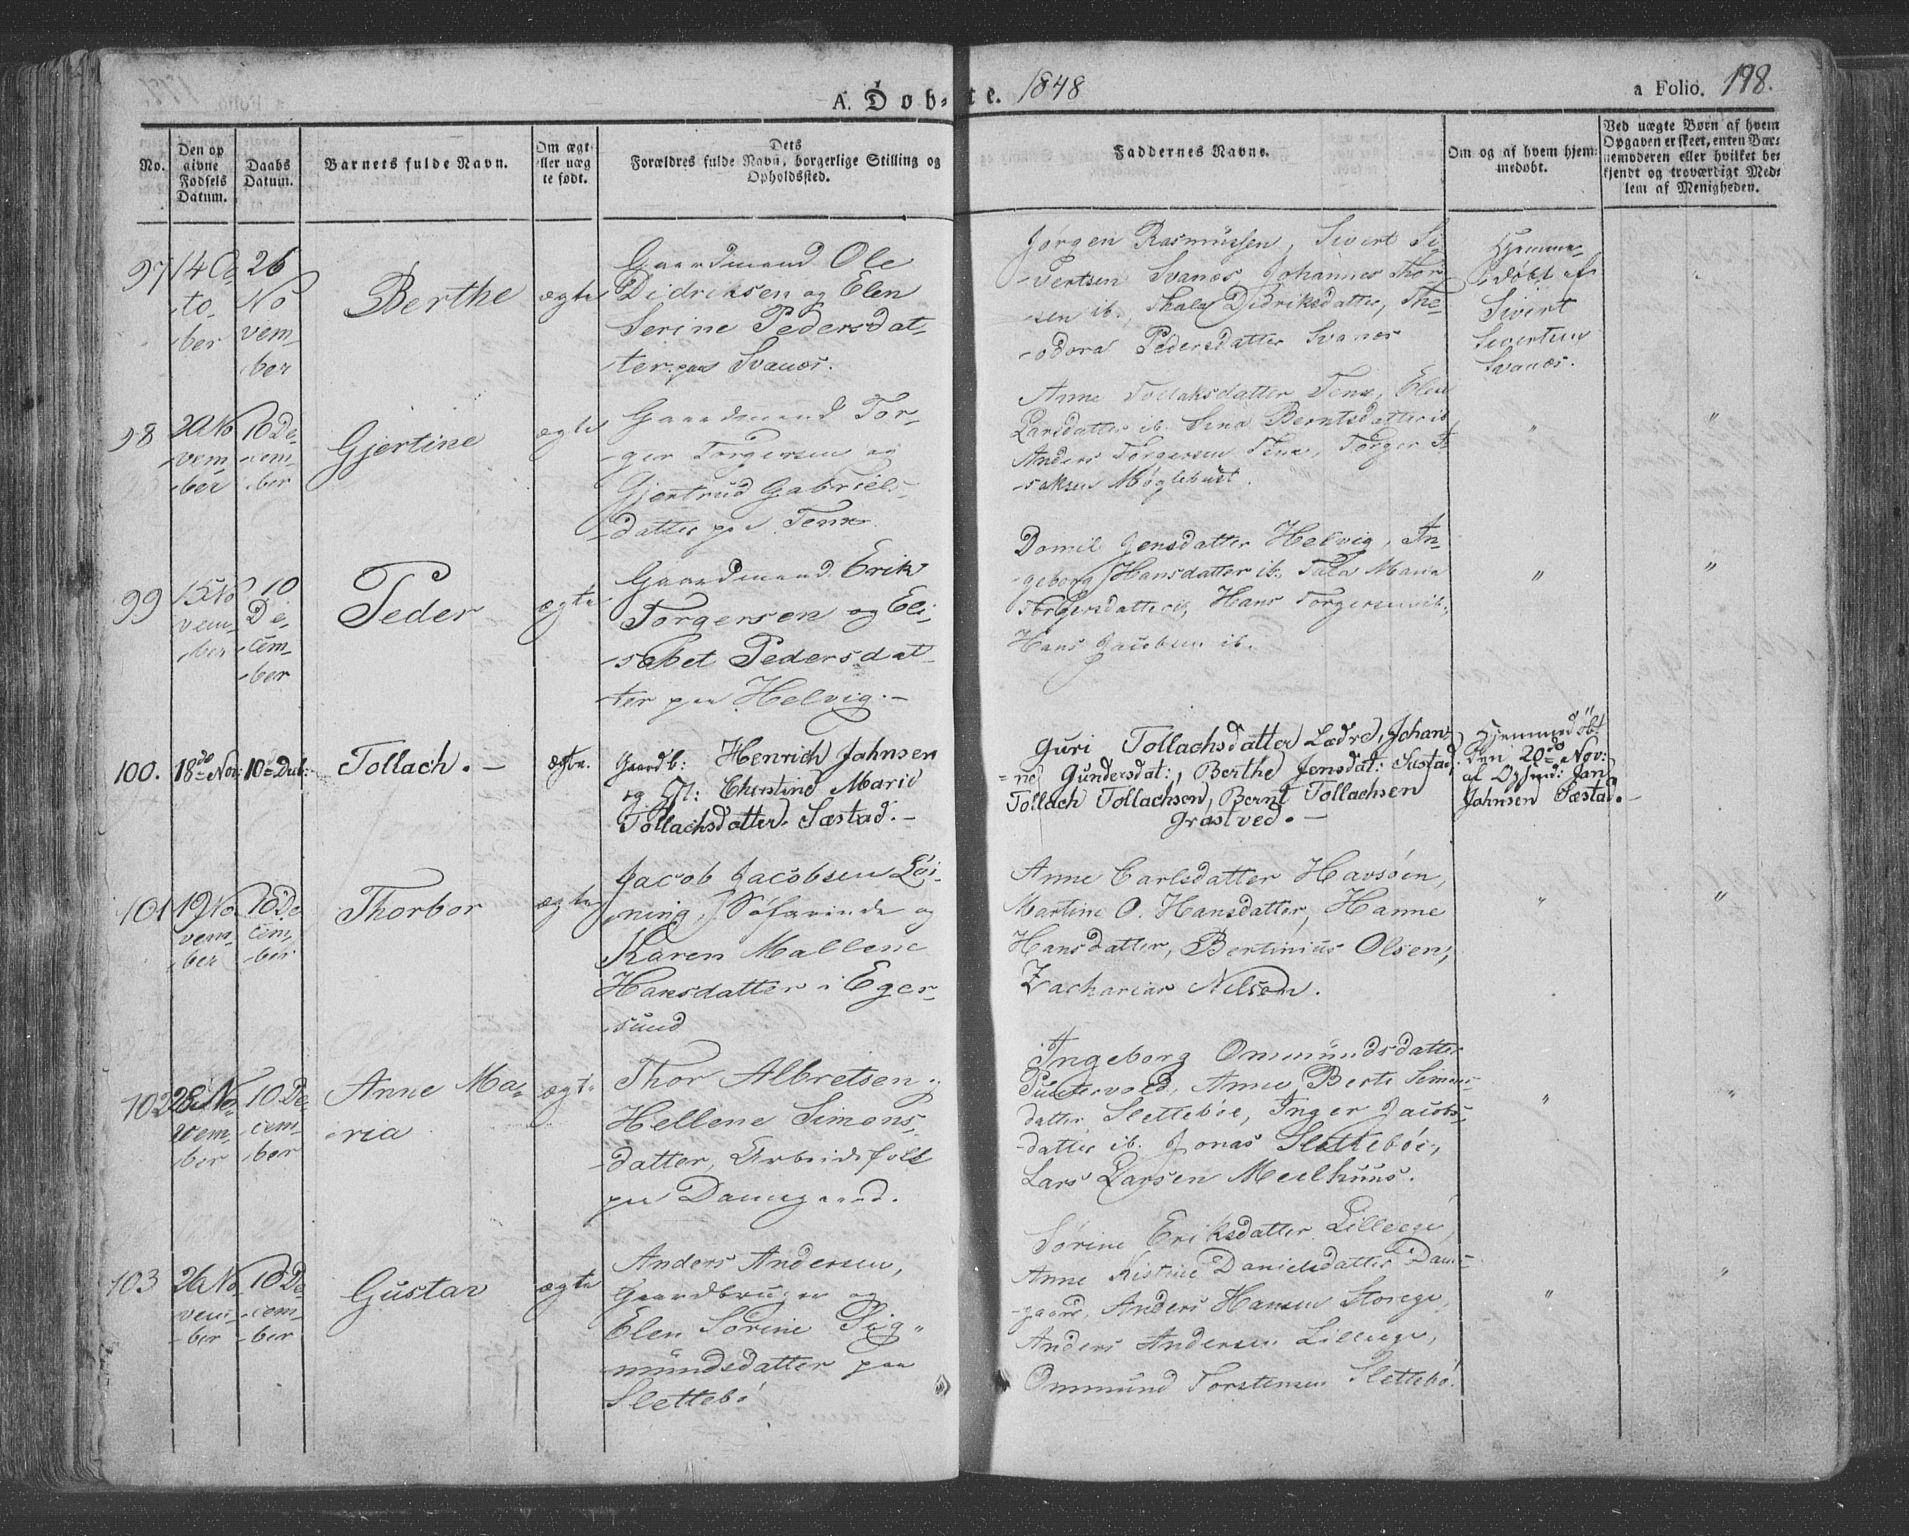 A. Døb-te. 1848
a Folio. 198.
No.
Den op
givne
Fødsels
Datum.
Daabs
Datum.
Barnets fulde Navn.
Om ægt
eller uæg
te født.
Dets
Forældres fulde Navn, borgerlige Stilling og
Opholdssted.
Faddernes Navne.
Om og af hvem hjem-
medøbt.
Ved uægte Børn af hvem
Opgaven er skeet, enten Bar-
nemoderen eller hvilket be
kjendt og troværdigt Med-
lem af Menigheden.
97
14 Oc
-to-
ber
26
No
vem-
ber
Berthe
ægte
Gaardmand Ole
Didriksen og Elen
Serine Pedersdat-
-ter paa Svanæs.
Jørgen Rasmussen, Sivert Si-
-vertsen Svanæs, Johannes Thor-
-sen ib., Thala Didriksdatter, The-
-odora Pedersdatter Svanæs
Hjemme-
døbt af
Sivert
Sivertsen
Svanæs.
98
20 No
vem-
ber
10 De-
-cem-
ber
Gjertine
ægte
Gaardmand Tor-
-ger Torgersen og
Gjertrud Gabriels-
-datter paa
Anne Tollaksdatter Elen
Larsdatter ib. Sina Berntsdatter ib
Anders Torgersen Torger I-
-saksen Møglebust.
"
99
15 No
vem-
ber
10
De-
-cem-
-ber
Peder
ægte
Gaardmand Erik
Torgersen og Eli-
-sabet Pedersdat-
-ter paa Helvig.-
Domil Jensdatter Helvig, In-
-geborg Hansdatter ib., Tala Maria
Torgersdatter ib, Hans Torgersen ib.
Hans Jacobsen ib.
"
"
100.
18de Nov:
10de Dcb:
Tollach.-
ægte.
Gaardb: Henrich Johnsen
og Christine Marie
Tollachsdatter. Sæstad.-
Guri Tollachsdatter Lædre, Johan-
-ne Gundersdat:, Berthe Jensdat: Sæstad,
Tollach Tollachsen, Bernt Tollachsen
Grastved.-
Hjemmedøbt
den 20de Nov:
af Jan
Johnsen Sæstad.-
101
19 No
vem-
ber
10 De
cem-
-ber
Thorbor
ægte
Jacob Jacobsen Løi-
-ning, Søfarende og
Karen Mallene
Hansdatter i Eger-
-sund
Anne Carlsdatter Havsøen,
Martine O. Hansdatter, Hanne
Hansdatter, Bertinius Olsen,
Zacharias Nilsen.
"
"
102
28 No-
vem-
ber
10 De-
cem-
ber
Anne Ma-
-ria
ægte
Thor Albretsen og
Hellene Simons-
-datter, Arbeidsfolk
paa Damsgaard.
Ingeborg Ommundsdatter
Puntervold, Anne Berte Simons-
datter, Slettebøe, Inger Jacobs-
datter ib. Jonas Slettebøe,
Lars Larsen Meelhuus.
"
"
103
26 No
vem-
-ber
10 De
cem-
-ber
Gustav
ægte
Anders Andersen,
Gaardbruger og
Elen Sørine Sig-
mundsdatter paa
Slettebø
Sørine Eriksdatter Lilleege,
Anne Kistine Danielsdatter Dam-
gaard, Anders Hansen Storege,
Anders Andersen Lilleege,
Ommund Torstensen Slettebø.
"
"